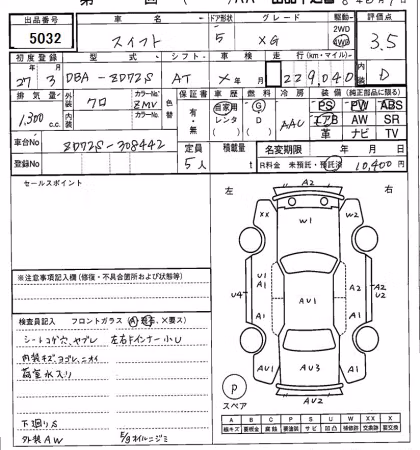 出品番号
5032
車名
スイフト
ドア形状
5
グレード
XG
駆動
2WD
4WD
評価点
3.5
初度登録
27年3月
型式
DBA-ZD72S
シフト
AT
車検
×年 月
走行(km・マイル)
229,040
内装
D
排気量
1,300 c.c.
外装
クロ
カラーNo.
ZMV
内装
カラーNo.
色替
保証書
有・無
車歴
自家用
レンタ
燃料
G
D
冷房
AAC
装備(純正部品に限る)
PS PW ABS
エアB AW SR
革 ナビ TV
車台No
ZD72S-308442
登録No
定員
5人
積載量
kg
名変期限 年 月 日
R料金 未預託・預託済 10,400円
セールスポイント
左
右
A2
XX
W1
W2
U1
A1
U4
A1
AU1
A2
A2
U2
A1
A1
AU3
A1
AU2
P
スペア
※注意事項記入欄(修復・不具合箇所および状態等)
検査員記入 フロントガラス(A)飛石,×要ス)
シートコゲ穴、ヤブレ 左右ドインナー小U
内装キズ、ヨゴレ、ニオイ
荷室水入り
下廻りS
外装AW
E/gオイルニジミ
A B C P S U W X XX
線キズ 要板金 腐蝕 要塗装 サビ 凹凸 補修跡 要交換 交換済